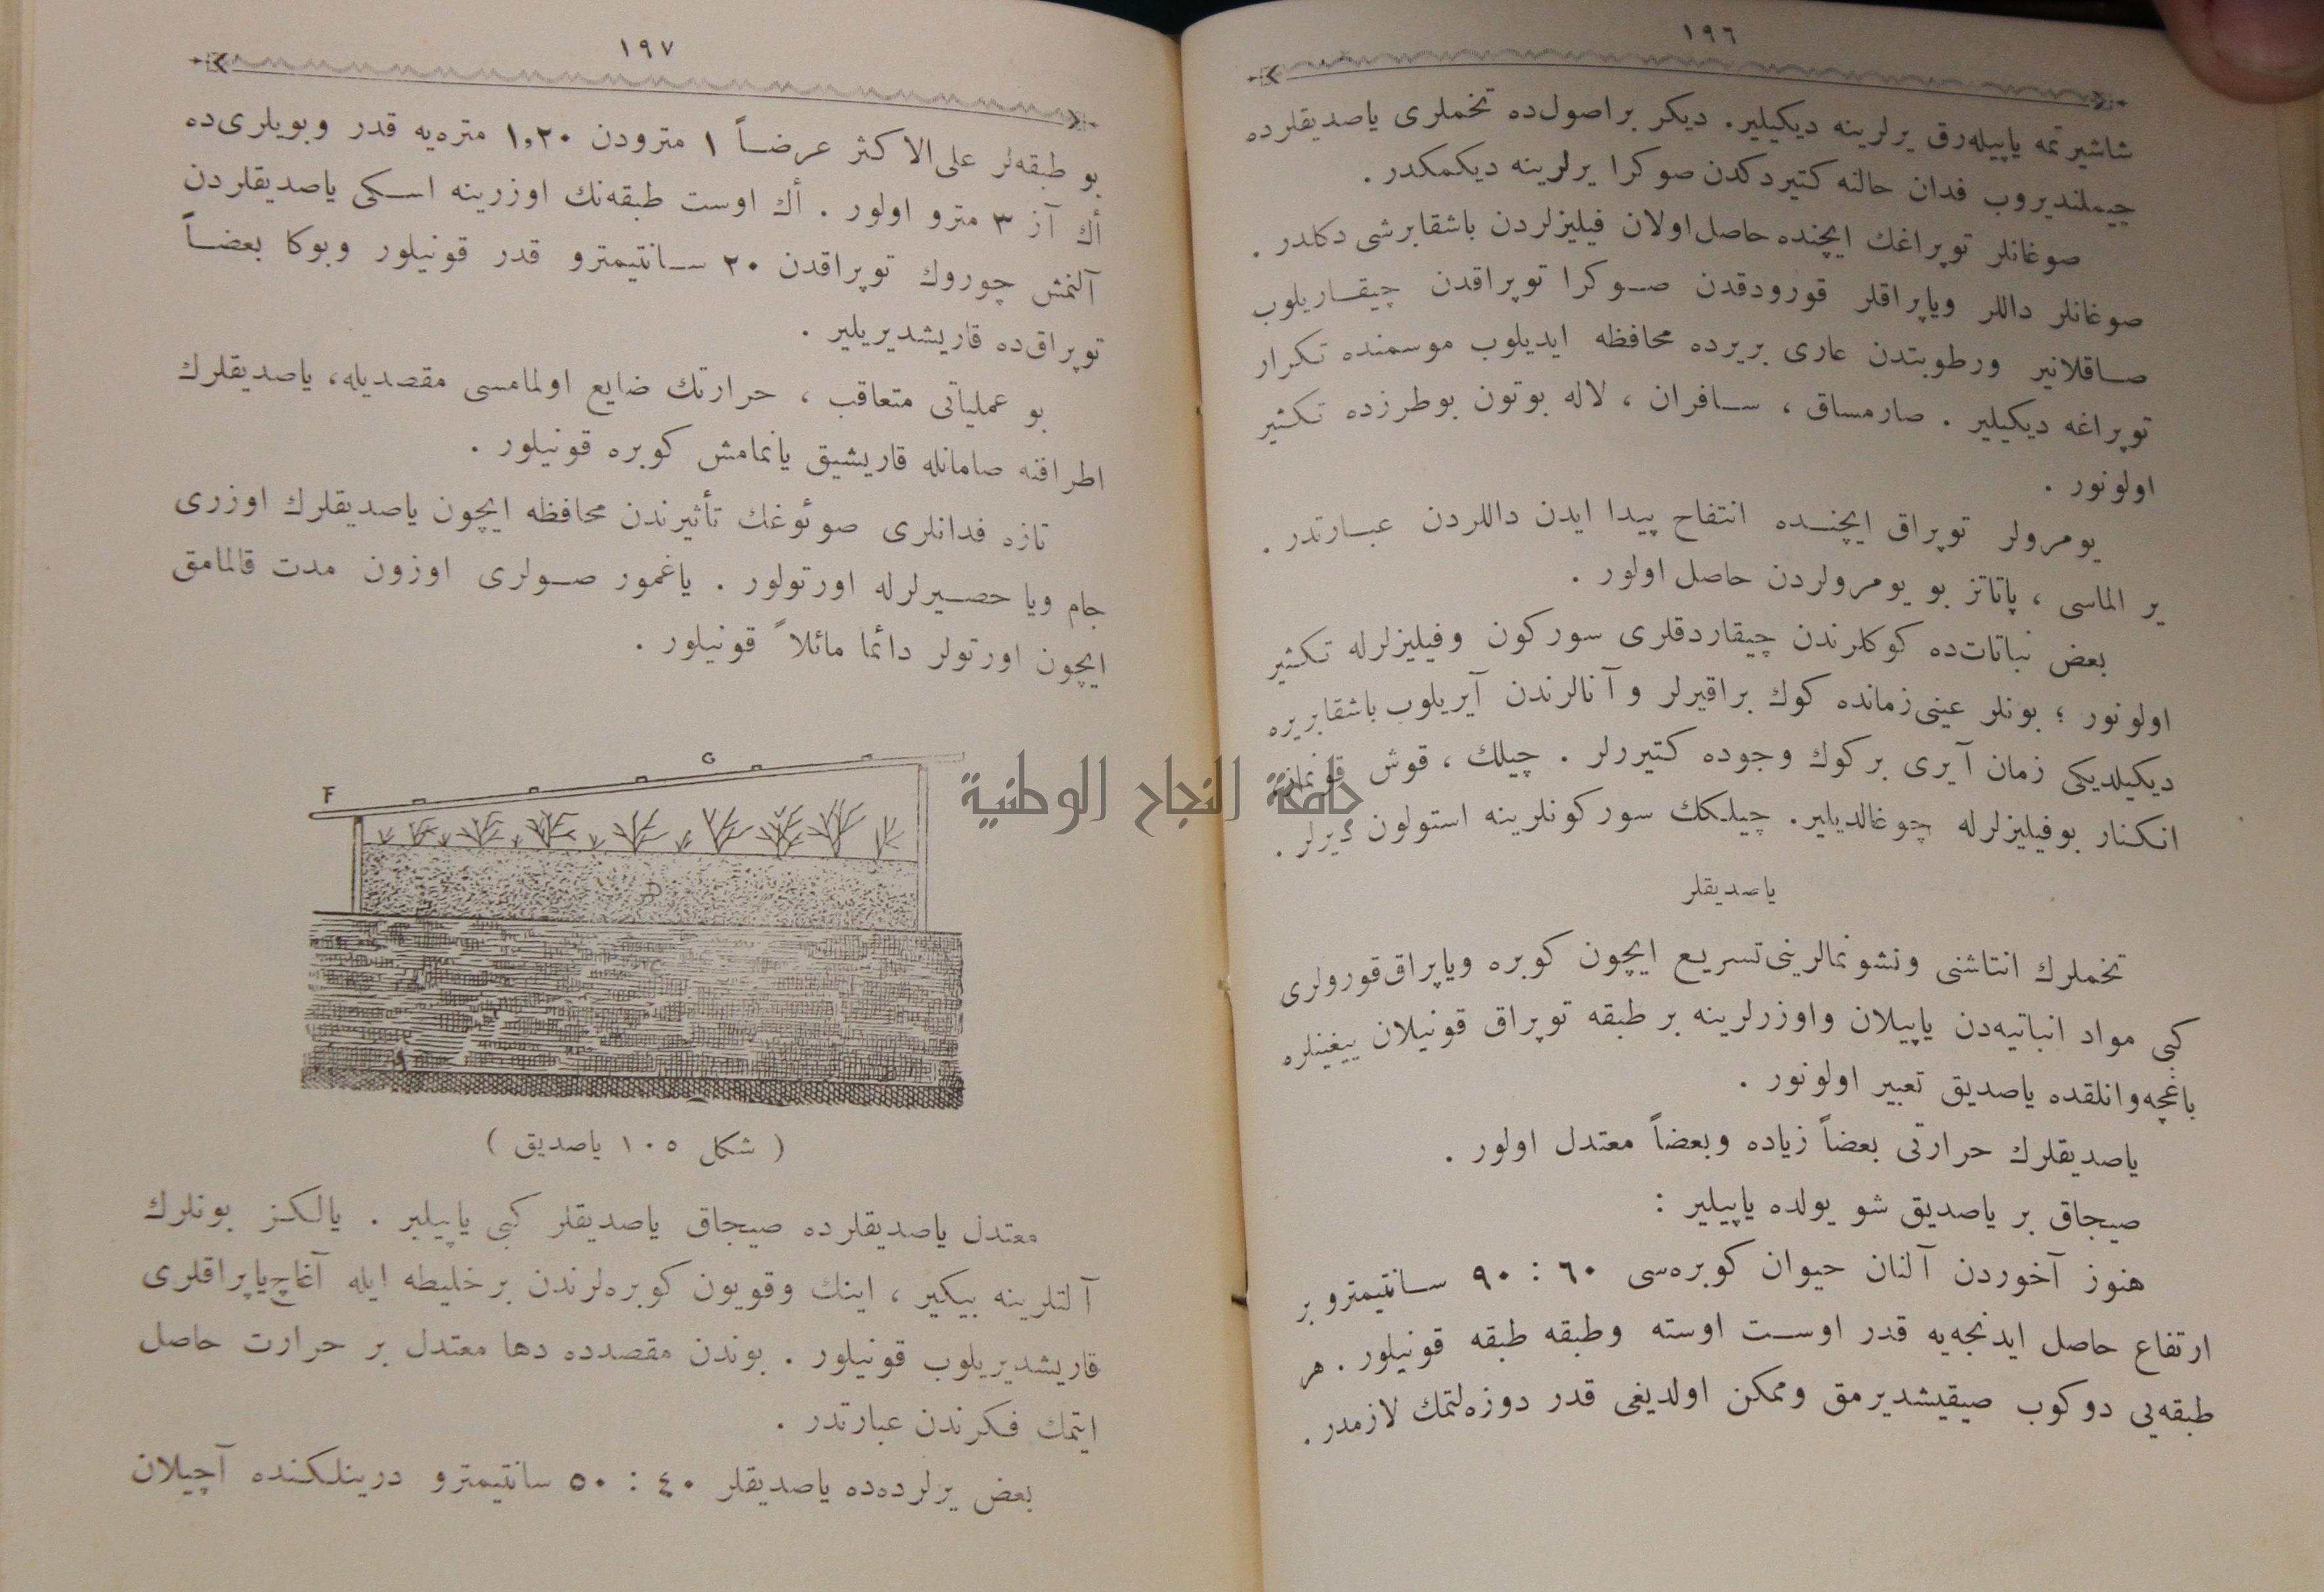 ١٩٦
شاشيرتمه ياپيله‌رق يرلرينه ديكيلير. ديكر براصول‌ده تخملرى ياصديقلرده
چيملنديروب فدان حالنه كتيردكدن صوكرا يرلرينه ديكمكدر .
صوغانلر توپراغك ايچنده حاصل‌اولان فيليزلردن باشقابرشى دكلدر .
صوغانلر داللر وياپراقلر قورودقدن صوكرا توپراقدن چيقاريلوب
صاقلانير ورطوبتدن عارى بريرده محافظه ايديلوب موسمنده تكرار
توپراغه ديكيلير . صارمساق ، سافران ، لاله بوتون بوطرزده تكثير
اولونور .
يومرولر توپراق ايچنده انتفاح پيدا ايدن داللردن عبارتدر .
ير الماسى ، پاتاتز بو يومرولردن حاصل اولور .
بعض نباتات‌ده كوكلرندن چيقاردقلرى سوركون وفيليزلرله تكثير
اولونور ؛ بونلر عينى‌زمانده كوك براقيرلر و آنالرندن آيريلوب باشقابريره
ديكيلديكى زمان آيرى بركوك وجوده كتيررلر . چيلك ، قوش قونماز
انكنار بوفيليزلرله چوغالديلير. چيلكك سوركونلرينه استولون ديرلر .
جامعة النجاح الوطنية
ياصديقلر
تخملرك انتاشنى ونشونمالرينى‌تسريع ايچون كوبره وياپراق‌قورولرى
كبى مواد انباتيه‌دن ياپيلان واوزرلرينه بر طبقه توپراق قونيلان ييغينلره
باغچه‌وانلقده ياصديق تعبير اولونور .
ياصديقلرك حرارتى بعضاً زياده وبعضاً معتدل اولور .
صيجاق بر ياصديق شو يولده ياپيلير :
هنوز آخوردن آلنان حيوان كوبره‌سى ٦٠ : ٩٠ سانتيمترو بر
ارتفاع حاصل ايدنجه‌يه قدر اوست اوسته وطبقه طبقه قونيلور . هر
طبقه‌يى دوكوب صيقيشديرمق وممكن اولديغى قدر دوزه‌لتمك لازمدر .
١٩٧
بو طبقه‌لر على‌الاكثر عرضاً ١ مترودن ١,٢٠ متره‌يه قدر وبويلرى‌ده
أك آز ٣ مترو اولور . أك اوست طبقه‌نك اوزرينه اسكى ياصديقلردن
آلنمش چوروك توپراقدن ٢٠ سانتيمترو قدر قونيلور وبوكا بعضاً
توپراق‌ده قاريشديريلير .
بو عملياتى متعاقب ، حرارتك ضايع اولمامسى مقصديله، ياصديقلرك
اطرافنه صامانله قاريشيق يانمامش كوبره قونيلور .
تازه فدانلرى صوئوغك تأثيرندن محافظه ايچون ياصديقلرك اوزرى
جام ويا حصيرلرله اورتولور . ياغمور صولرى اوزون مدت قالمامق
ايچون اورتولر دائما مائلاً قونيلور .
F G
D
(شكل ١٠٥ ياصديق)
معتدل ياصديقلرده صيجاق ياصديقلر كبى ياپيلير . يالكز بونلرك
آلتلرينه بيكير ، اينك وقويون كوبره‌لرندن برخليطه ايله آغاچ‌ياپراقلرى
قاريشديريلوب قونيلور . بوندن مقصدده دها معتدل بر حرارت حاصل
ايتمك فكرندن عبارتدر .
بعض يرلرده‌ده ياصديقلر ٤٠ : ٥٠ سانتيمترو درينلكنده آچيلان